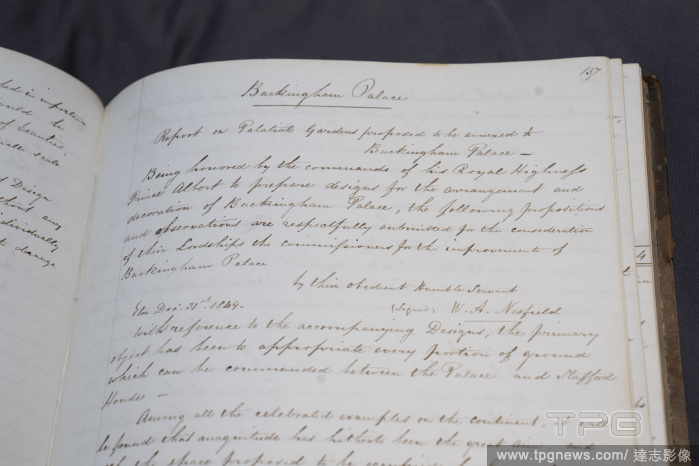 ded in importance
ould be
of Localities
well scale
Design
without any
individually
to damage
157
Buckingham Palace
Report on Palatial Gardens proposed to be annexed to
Buckingham Palace —
Being honored by the commands of his Royal Highness
Prince Albert to prepare designs for the arrangement and
decoration of Buckingham Palace, the following propositions
and observations are respectfully submitted for the consideration
of their Lordships the commissioners for the improvement of
Buckingham Palace
by their obedient Humble Servant
Eton Decr. 31st. 1848.
(Signed) W. A. Nesfield
With reference to the accompanying Designs, the primary
object has been to appropriate every portion of ground
which can be commanded between the Palace and Stafford
House —
Among all the celebrated examples on the continent, it will
be found that magnitude has hitherto been the great
the space proposed to be
4
TPG
www.tpgnews.com/ 達志影像